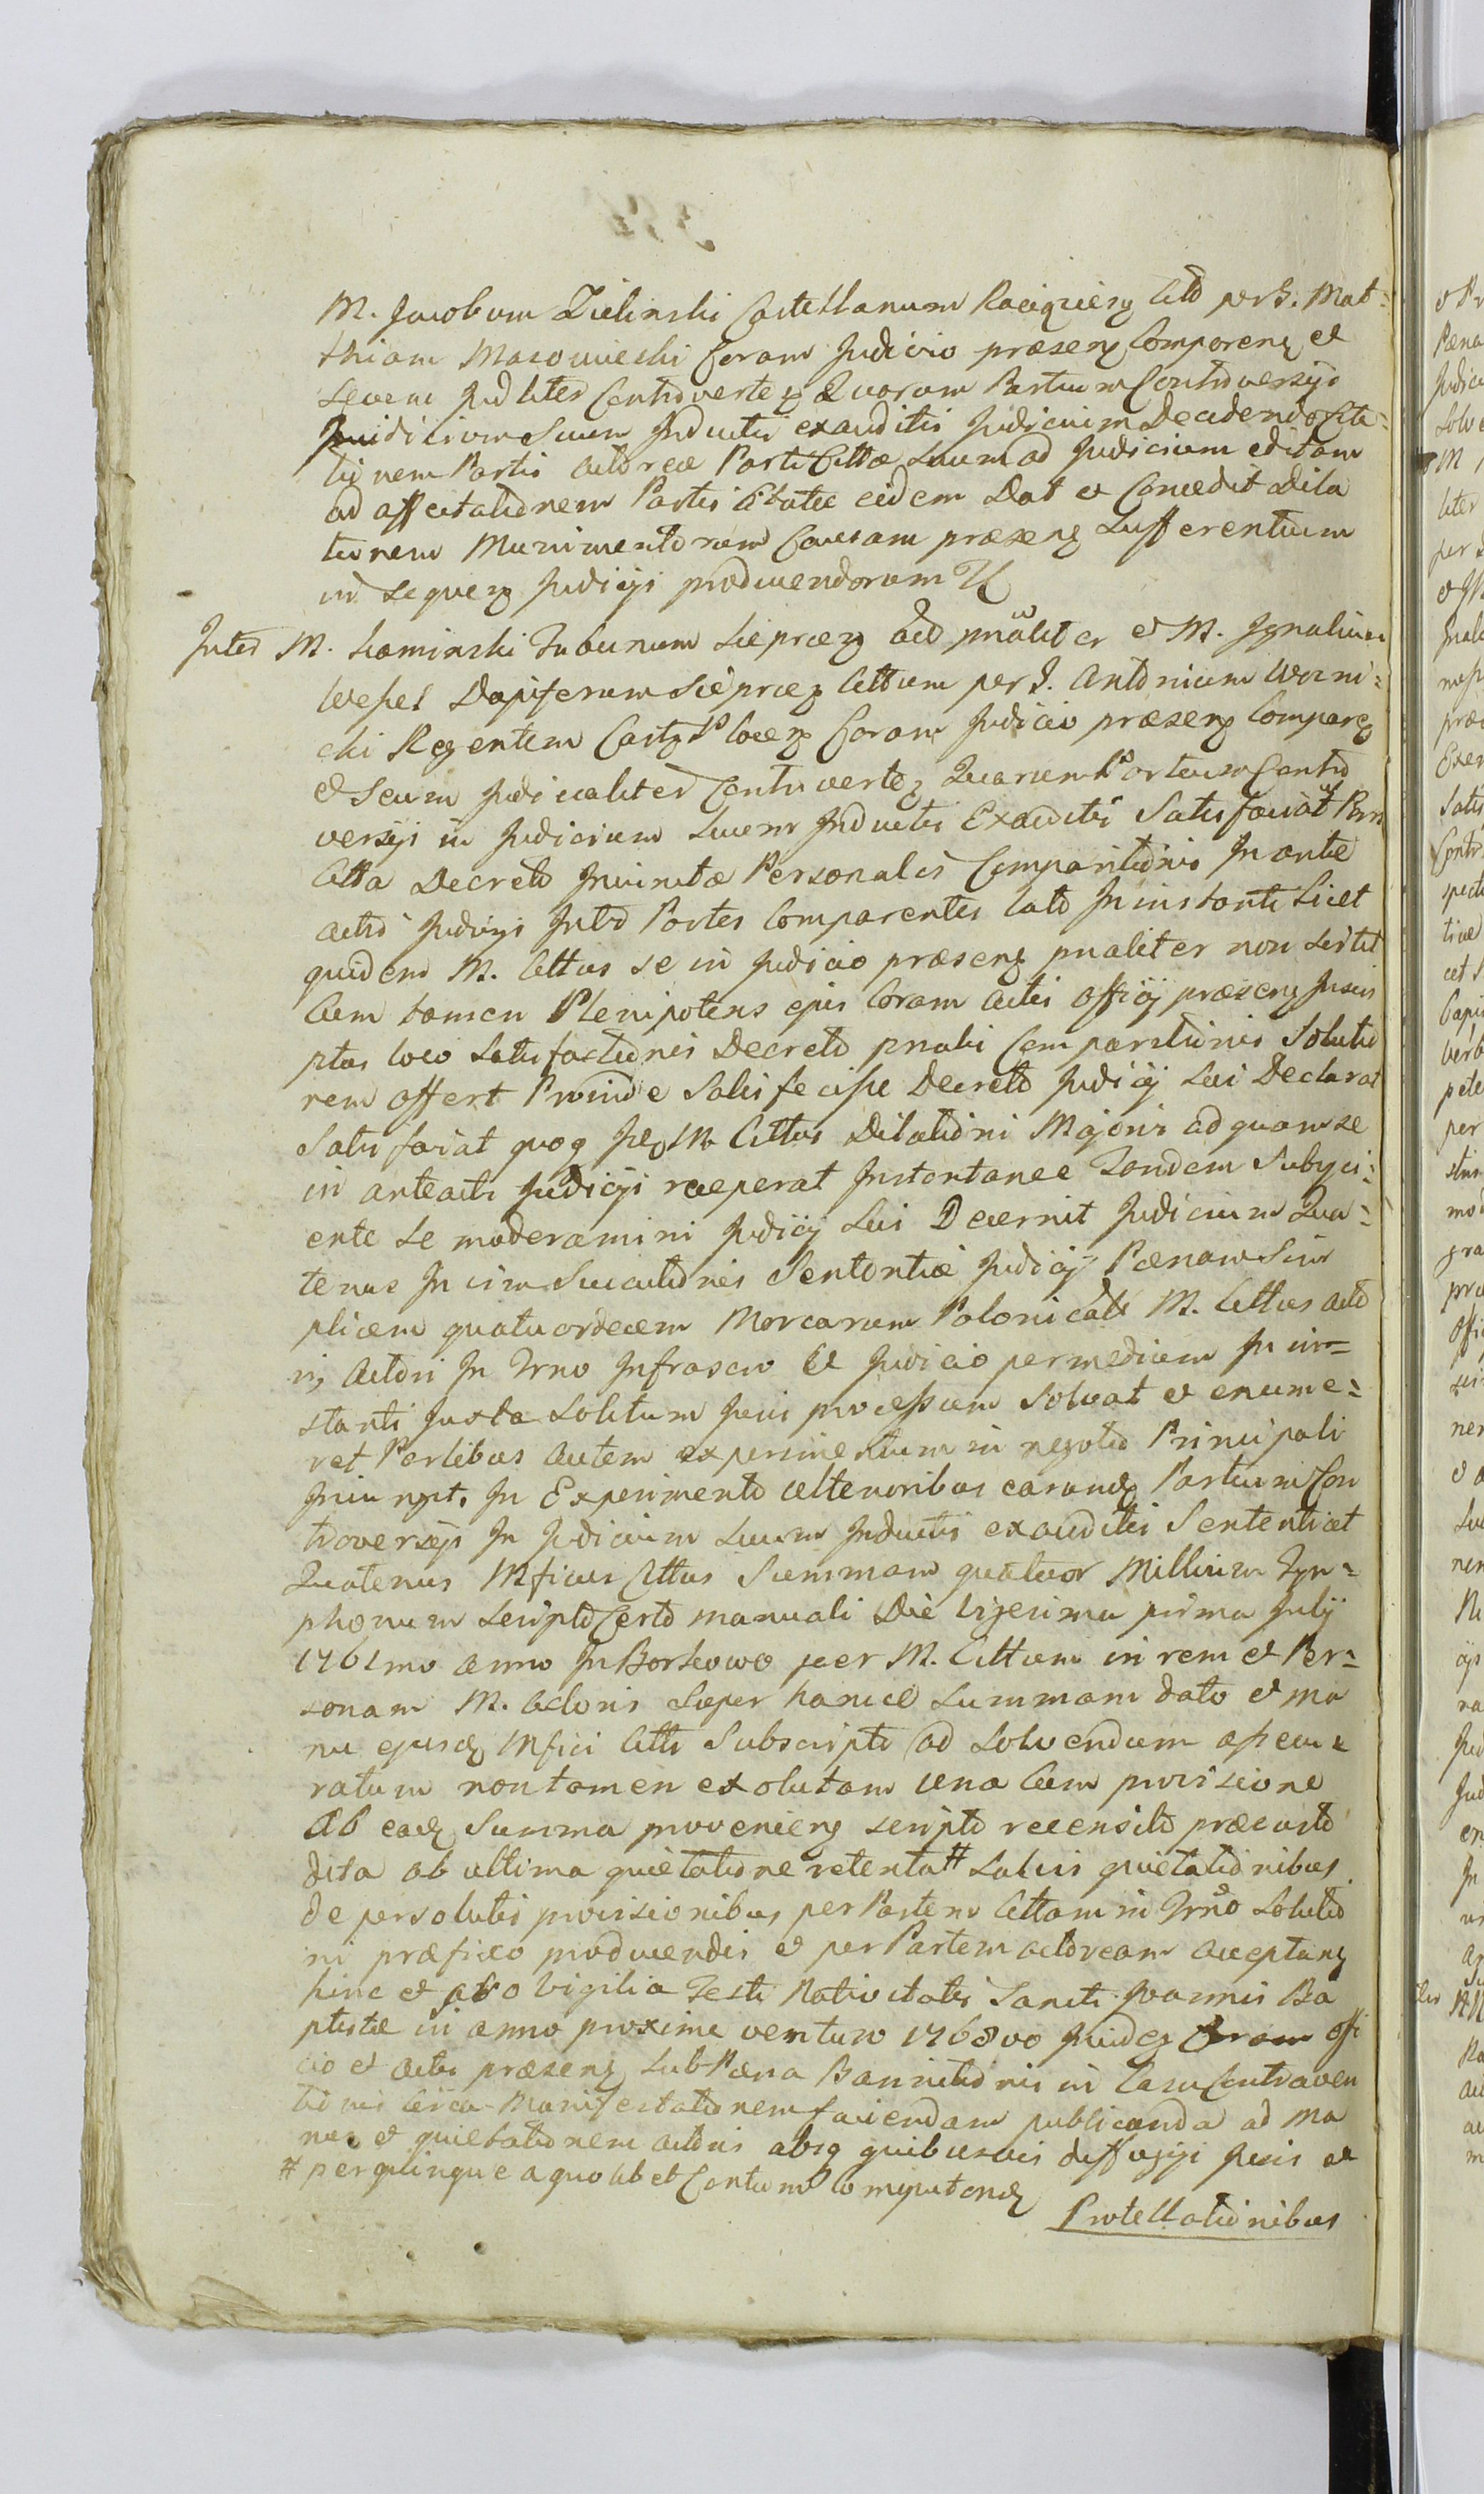 M. Jacobum Zielinski Castellanum Raciązieng Cittd per G. Mat=
thiam Masowiecki Coram Judicio præseng Compareng et
Secum Judliter Controverteg Quorum Partium Controversijs
Juidicium Suum Inductis exauditis Judicium Decidendo Cita=
tionem Partis Actoreæ Parti Cittæ Suum ad Judicium editam
ad affectationem Partis Citatæ eidem Dat et Concedit Dila
tionem Munimentorum Causam præseng Sufferentium
in sequeng Judicijs producendorum
Inter M. Kaminski Tribunum Sieprceg Act pnaliter et M. Ignatium
Wessel Dapiferum Sieprceg Cittum per G. Antonium Wozni=
cki Regentem Castg Ploceng Coram Judicio præseng Compareg
et Secum Judicialiter Controverteg Quarum Partium Contro
versijs in Judicium Suum Inductis Exauditis Satisfaciat Pars
Citta Decreto Injunctæ Personalis Comparitionis In ante
actis Judicijs Inter Partes Comparentes lato In instanti Licet
quidem M. Cittus se in Judicio præseng pnaliter non Stitit
Cum tamen Plenipotens ejus Coram Actis Officij præseng Inscri
ptus loco Satisfactionis Decreto pnalis Comparitionis Solutio
nem offert Proinde Satisfecisse Decreto Judicij Sui Declarat
Satisfaciat quoq Idem M. Cittus Dilationi Majoris ad quam se
in anteactis Judicijs receperat Instantanee Tandem Subijci=
ente Se moderamini Judicij Sui Decernit Judicium Qua=
tenus In vim Luicationis Sententiæ Judicij Pænam Sim
plicem quatuordecem Marcarum Polonicali M. Cittus Acto
in Actori In Trno Infrascro Et Judicio permedium In in=
stanti Juxta Solitum Juris processum Solvat et enume=
ret Partibus Autem experimentum in negotio Principali
Injungit. In Experimento Ulterioribus earundg Partium Con
troversijs In Judicium Suum Inductis exauditis Sententiat
Quatenus Mficus Cittus Summam quatuor Millium Tyn=
phonum Scripto Certo manuali Die Vigesima prima Julij
1761mo anno In Borkowo per M. Cittum in rem et Per=
sonam M. Actoris Super hancce Summam dato et ma
nu ejusdg Mfici Citti Subscripto ad Solvendum assecu=
ratum non tamen exolutam una Cum provisione
Ab eadg Summa provenieng scripto recensito præcusto
dita ab ultima quietatione retenta # Salvis quietationibus
de persolutis provisionibus per Partem Cittam in Trno Solutio
ni præfixo producendis et per Partem Actoream Acceptang
hinc et pro Vigilia Festi Nativitatis Sancti Joannis Ba
ptistæ in anno proxime venturo 1768vo Ibidem Coram offi
cio et Actis præseng Sub Pæna Bannitionis in Casu Contraven
tionis Circa Manifestationem faciendam publicanda ad ma
nus et quietationem Actoris absq quibusvis diffugijs Juris et
# per quinque a quolibet Centum Computandg
Protellationibus